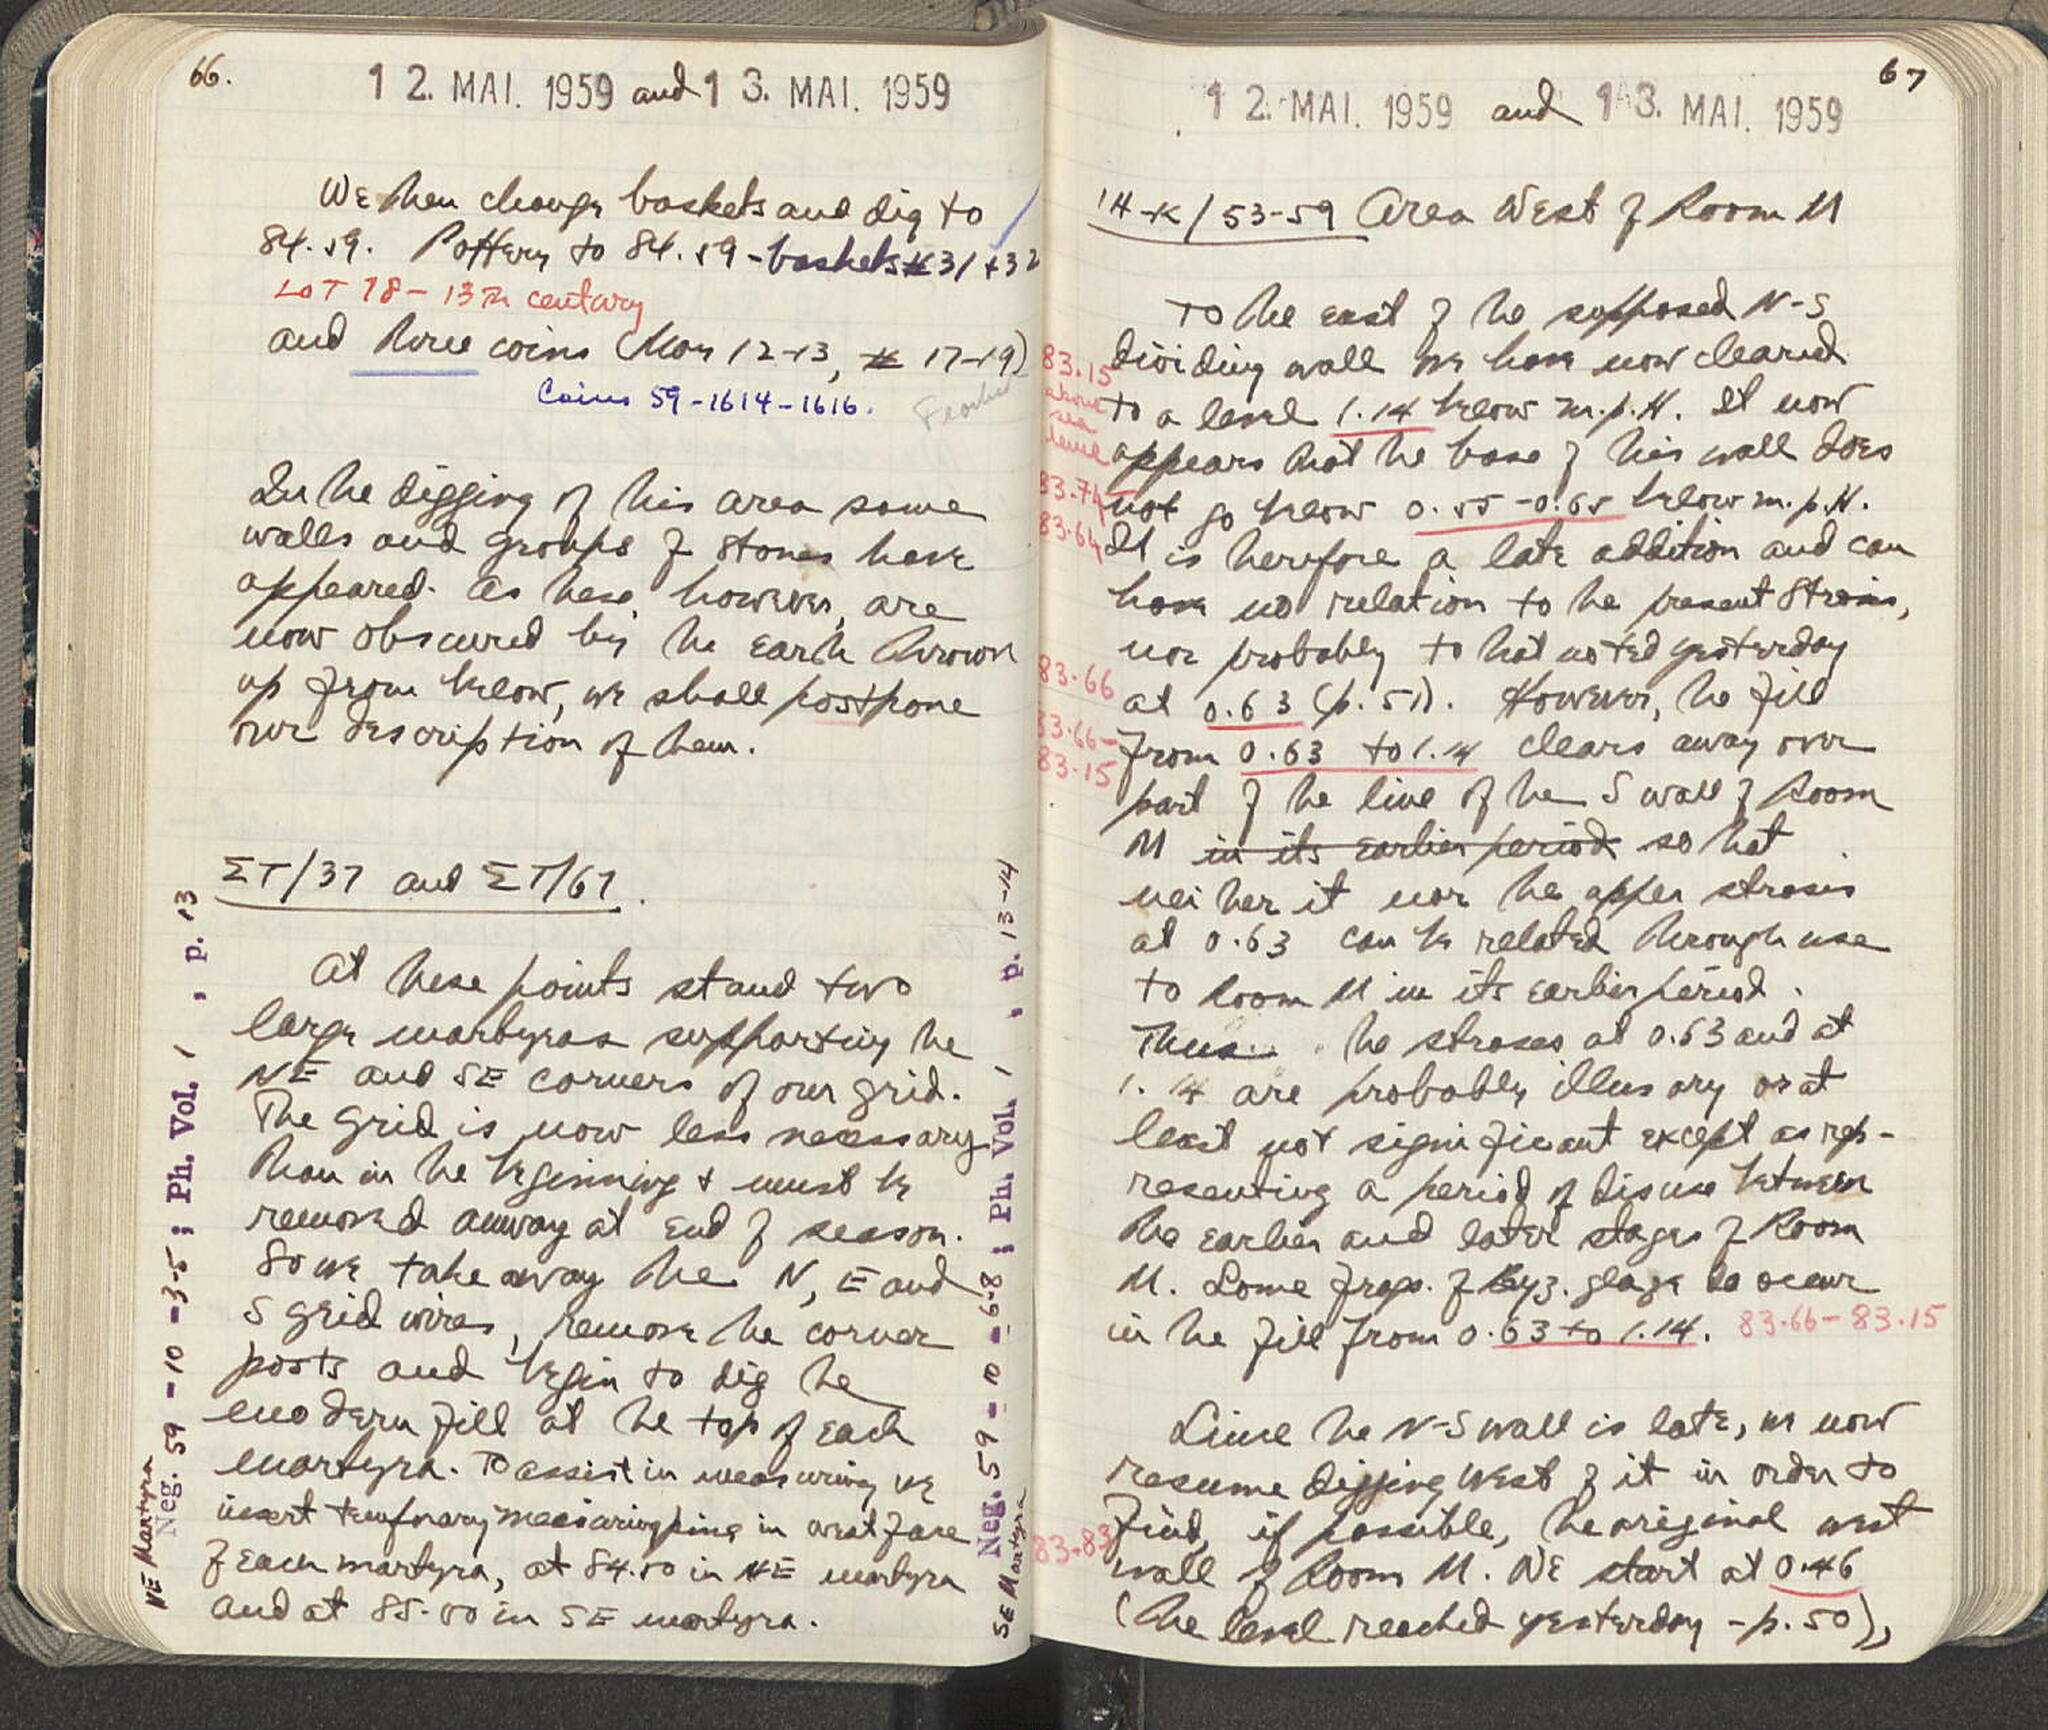 66.
12. MAI. 1959 and 13. MAI. 1959
We then change baskets and dig to
84.59. Pottery to 84.59 - baskets # 31 + 32
LOT 18 - 13th century
and three coins (May 12-13, # 17-19)
Coins 59-1614-1616.
In the digging of this area some
walls and groups of stones have
appeared. As these, however, are
now obscured by the earth thrown
up from below, we shall postpone
our description of them.
ΣΤ/37 and ΣΤ/67.
At these points stand two
large martyras supporting the
NE and SE corners of our grid.
The grid is now less necessary
than in the beginning + must be
removed anyway at end of season.
So we take away the N, E and
S grid wires, remove the corner
posts and begin to dig the
modern fill at the top of each
martyra. To assist in measuring we
insert temporary measuring pins in west face
of each martyra, at 84.50 in NE martyra
and at 85.50 in SE martyra.
NE Martyra
Neg. 59 - 10 - 3-5 ; Ph. Vol. 1 , p. 13
SE Martyra
Neg. 59 - 10 - 6-8 ; Ph. Vol. 1 , p. 13-14
67
12. MAI. 1959 and 13. MAI. 1959
14-K/53-59 Area West of Room M
To the east of the supposed N-S
83.15 dividing wall we have now cleared
above to a level 1.14 below m.p.H. It now
sea
level appears that the base of this wall does
83.74 not go below 0.55-0.65 below m.p.H.
83.64 It is therefore a late addition and can
have no relation to the present strosis,
nor probably to that noted yesterday
83.66 at 0.63 (p. 51). However, the fill
83.66- from 0.63 to 1.14 clears away over
83.15 part of the line of the S wall of Room
M in its earlier period so that
neither it nor the upper strosis
at 0.63 can be related through use
to Room M in its earlier period.
Thus the stroses at 0.63 and at
1.14 are probably illusary or at
least not significant except as rep-
resenting a period of disuse between
the earlier and later stages of Room
M. Some frags. of Byz. glaze do occur
in the fill from 0.63 to 1.14. 83.66-83.15
Since the N-S wall is late, we now
resume digging West of it in order to
find, if possible, the original west
83.83 wall of Room M. We start at 0.46
(the level reached yesterday - p. 50),